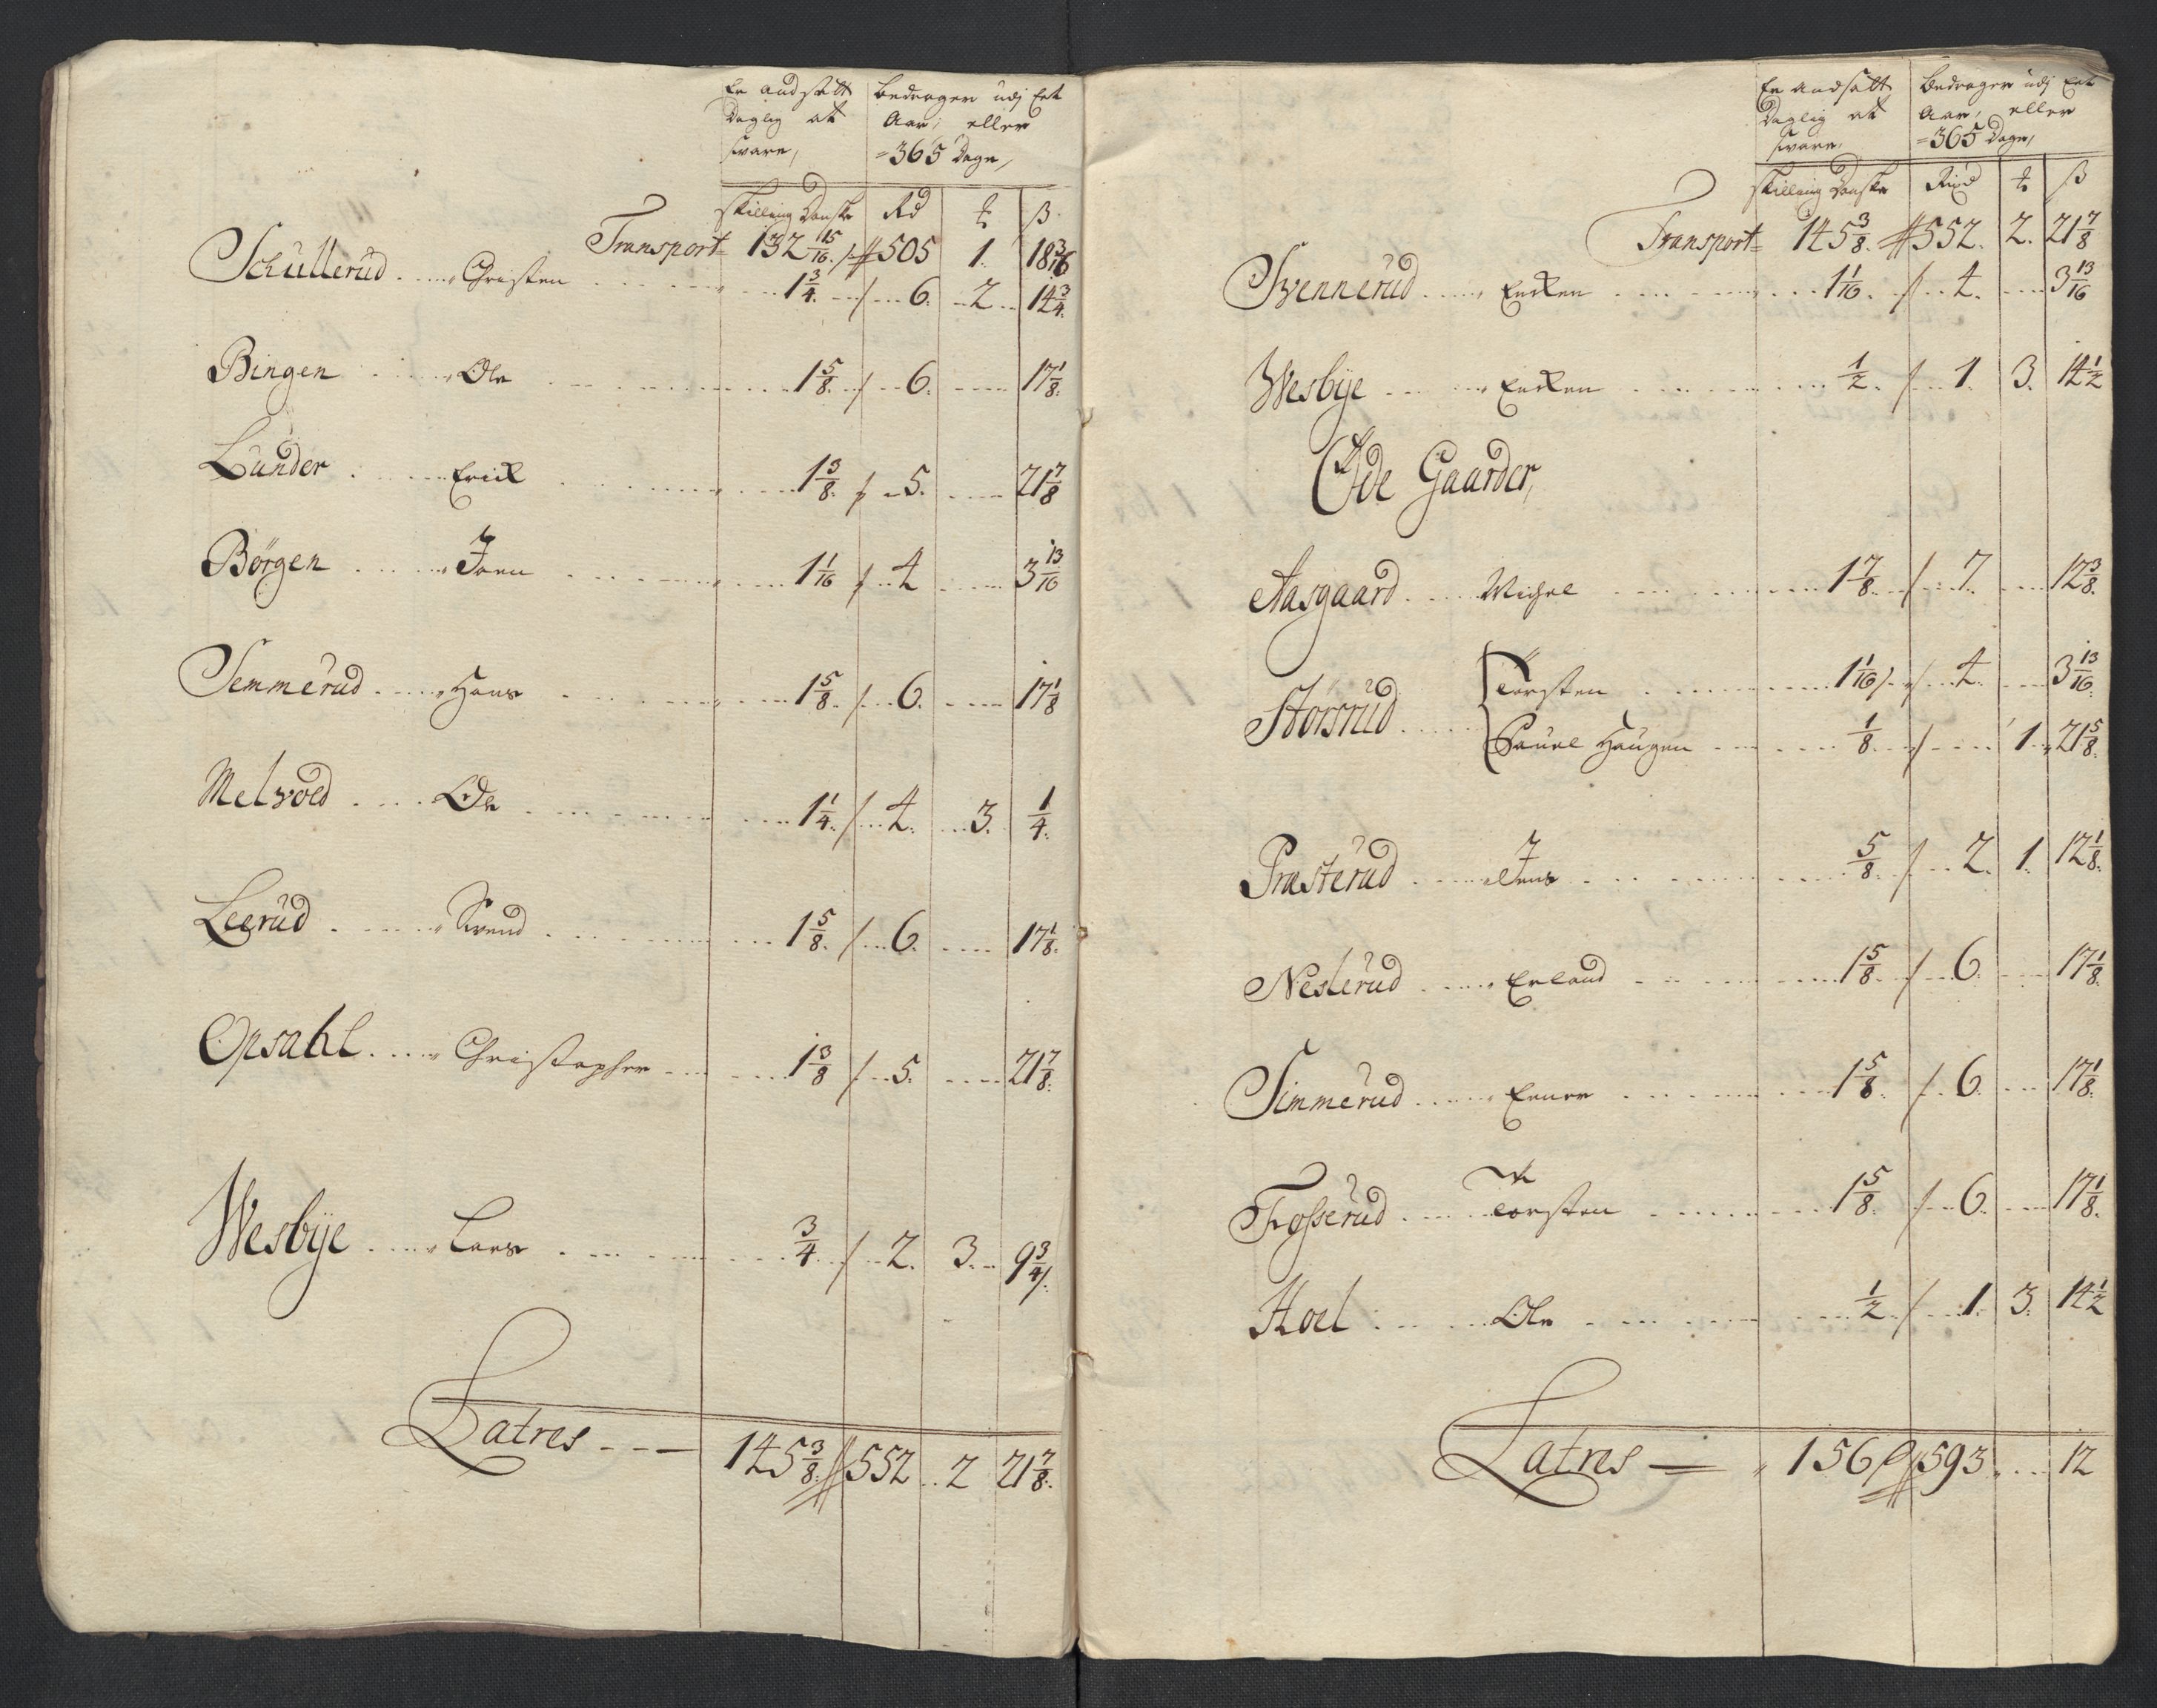 Er andsatt
Daglig at
svare,
bedragen udj Eet
Aar, eller
=365 Dage,
skilling Danske Rd ß
Transport= 132 15/16 ./. 505 1. 18 3/16
Schullerud Christen 1 3/4 6. 2 14 3/4
Bingen Ole 1 5/8 6. 17 1/8
Lunder Erick 1 3/8 5. 21 7/8
Børgen Joen 1 1/16 4 3 13/16
Semmerud Hans 1 5/8 6. 17 1/8
Melvold Ole 1 1/4 4. 3. 1/4
Leerud Svend 1 5/8 6. 17 1/8
Opsahl Christopher 1 3/8 5. 21 7/8
Wesbÿe Lars 3/4 2. 3. 9 3/4
Latres 145 3/8 552 2 21 7/8
Er andsatt
Daglig at
svare,
bedragen udj Eet
Aar, eller
=365 Dage,
skilling Danske ß
Transport= 145 3/8 552. 2. 21 7/8
Svennerud 1 1/16 4. 3 13/16
Wesbÿe 1/2 1. 3. 14 1/2
Øde Gaarder,
Aasgaard Michel 1 7/8 7. 12 3/8
Storsrud Torsten 1 1/16 4 3 13/16
Pouel Haugen 1/8 1 21 5/8
Præsterud Jens 5/8 2. 1. 12 1/8
Neslerud Erland 1 5/8 6. 17 1/8
Simmerud 1 5/8 6. 17 1/8
Fosserud Torsten 1 5/8 6. 17 1/8
Hoel Ole 1/2 1. 3. 14 1/2
Latres 156 593 12